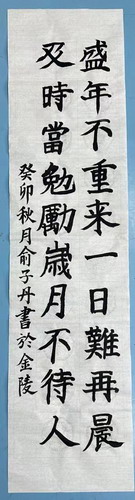 盛年不重来一日難再晨
及時當勉勵歲月不待人
癸卯秋月俞子丹書於金陵